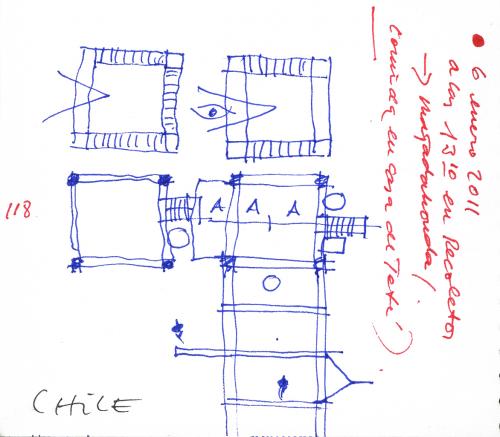 • 6 enero 2011
a las 13:10 en Recoletos
→ majadahonda /
Comida en casa de Teté)
118
A A A
CHILE